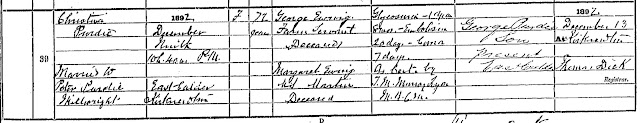 Christina
Purdie
Married to
Peter Purdie
Millwright
39
1892
December
Ninth
10h. 45m. P.M.
East Calder
Kirknewton
F
72
years
George Ewing
Farm Servant
Deceased
Margaret Ewing
M.S. Martin
Deceased
Glycosuria - 1 year
2 days - Coma
7 days.
As Cert. by
M.B. C.M.
George Purdie
Son
Present
December 13
At Kirknewton
Thomas Dick
Registrar.